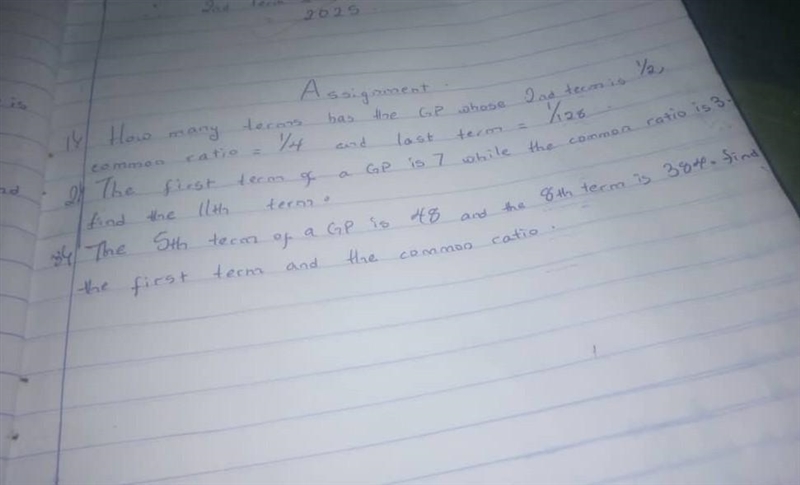 2nd Term
2025
Assignment.
1) How many terms has the GP whose 2nd term is 1/2,
common ratio = 1/4 and last term = 1/128.
2) The first term of a GP is 7 while the common ratio is 3.
find the 11th term.
3) The 5th term of a GP is 48 and the 8th term is 384. find
the first term and the common ratio.
is